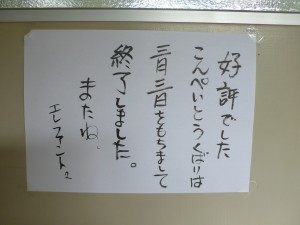 好評でした
こんぺいとうくばりは
三月三日をもちまして
終了しました。
またね。
エレファント